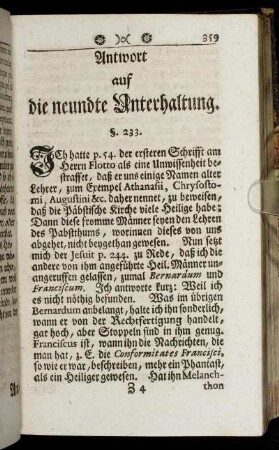 359
Antwort
auf
die neundte Unterhaltung.
§. 233.
ICh hatte p. 54. der ersteren Schrifft am
Herrn Flotto als eine Unwissenheit be-
straffet, daß er uns einige Namen alter
Lehrer, zum Exempel Athanasii, Chrysosto-
mi, Augustini &c. daher nennet, zu beweisen,
daß die Päbstische Kirche viele Heilige habe;
Dann diese fromme Männer seyen den Lehren
des Pabstthums, worinnen dieses von uns
abgehet, nicht beygethan gewesen. Nun setzt
mich der Jesuit p. 244. zu Rede, daß ich die
andere von ihm angeführte Heil. Männer un-
angeruffen gelassen, zumal Bernardum und
Franciscum. Ich antworte kurtz: Weil ich
es nicht nöthig befunden. Was im übrigen
Bernardum anbelangt, halte ich ihn sonderlich,
wann er von der Rechtfertigung handelt,
gar hoch, aber Stoppeln sind in ihm genug.
Franciscus ist, wann ihn die Nachrichten, die
man hat, z. E. die Conformitates Francisci,
so wie er war, beschreiben, mehr ein Phantast,
als ein Heiliger gewesen. Hat ihn Melanch-
Z 4
thon